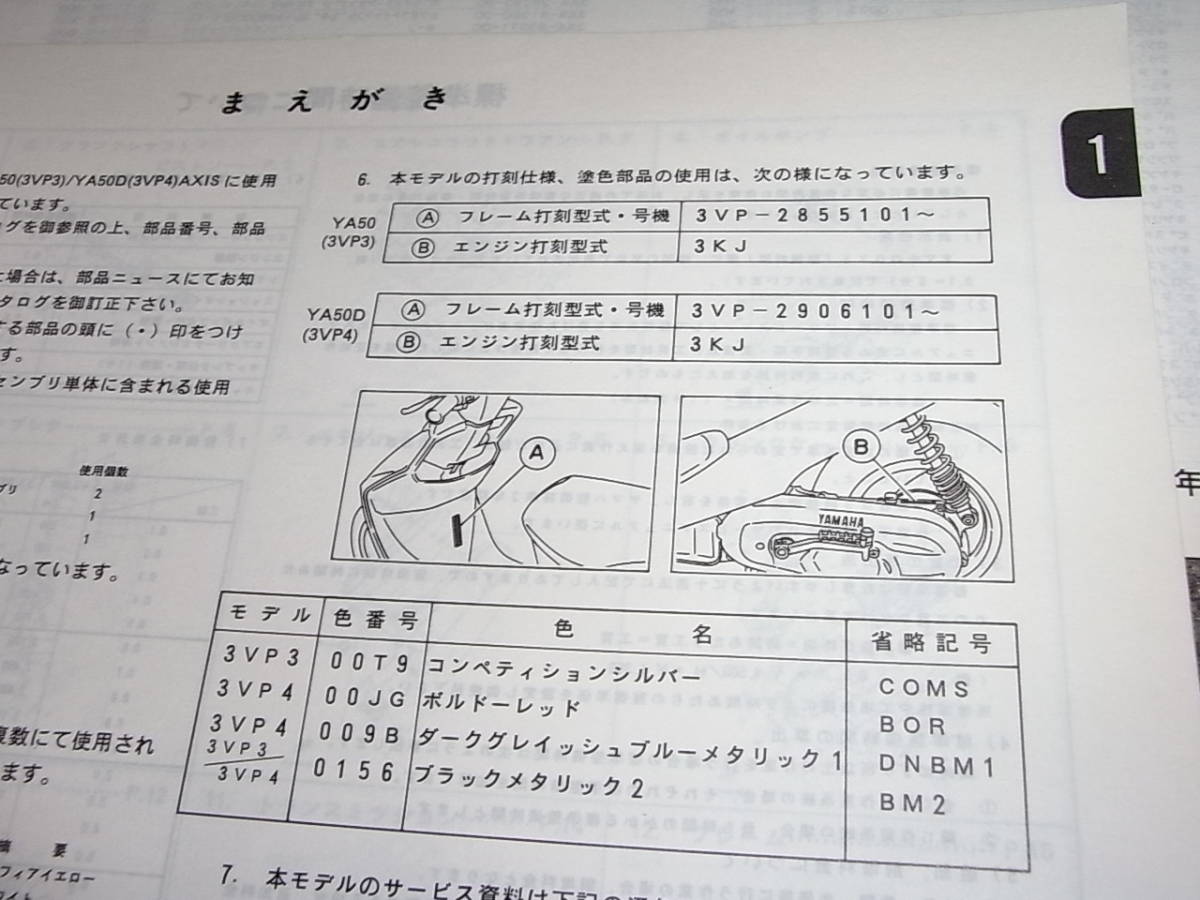 まえがき
1
50(3VP3)/YA50D(3VP4)AXISに使用
ています。
グを御参照の上、部品番号、部品
場合は、部品ニュースにてお知
タログを御訂正下さい。
する部品の頭に(・)印をつけ
す。
センブリ単体に含まれる使用
使用個数
ブリ 2
1
1
なっています。
複数にて使用され
ます。
摘要
フィアイエロー
6. 本モデルの打刻仕様、塗色部品の使用は、次の様になっています。
YA50
(3VP3)
Ⓐ フレーム打刻型式・号機 3VP-2855101~
Ⓑ エンジン打刻型式 3KJ
YA50D
(3VP4)
Ⓐ フレーム打刻型式・号機 3VP-2906101~
Ⓑ エンジン打刻型式 3KJ
A
B
YAMAHA
モデル 色番号 色名 省略記号
3VP3 00T9 コンペティションシルバー COMS
3VP4 00JG ボルドーレッド BOR
3VP4 009B ダークグレイッシュブルーメタリック1 DNBM1
3VP3/3VP4 0156 ブラックメタリック2 BM2
7. 本モデルのサービス資料は下記の通
年